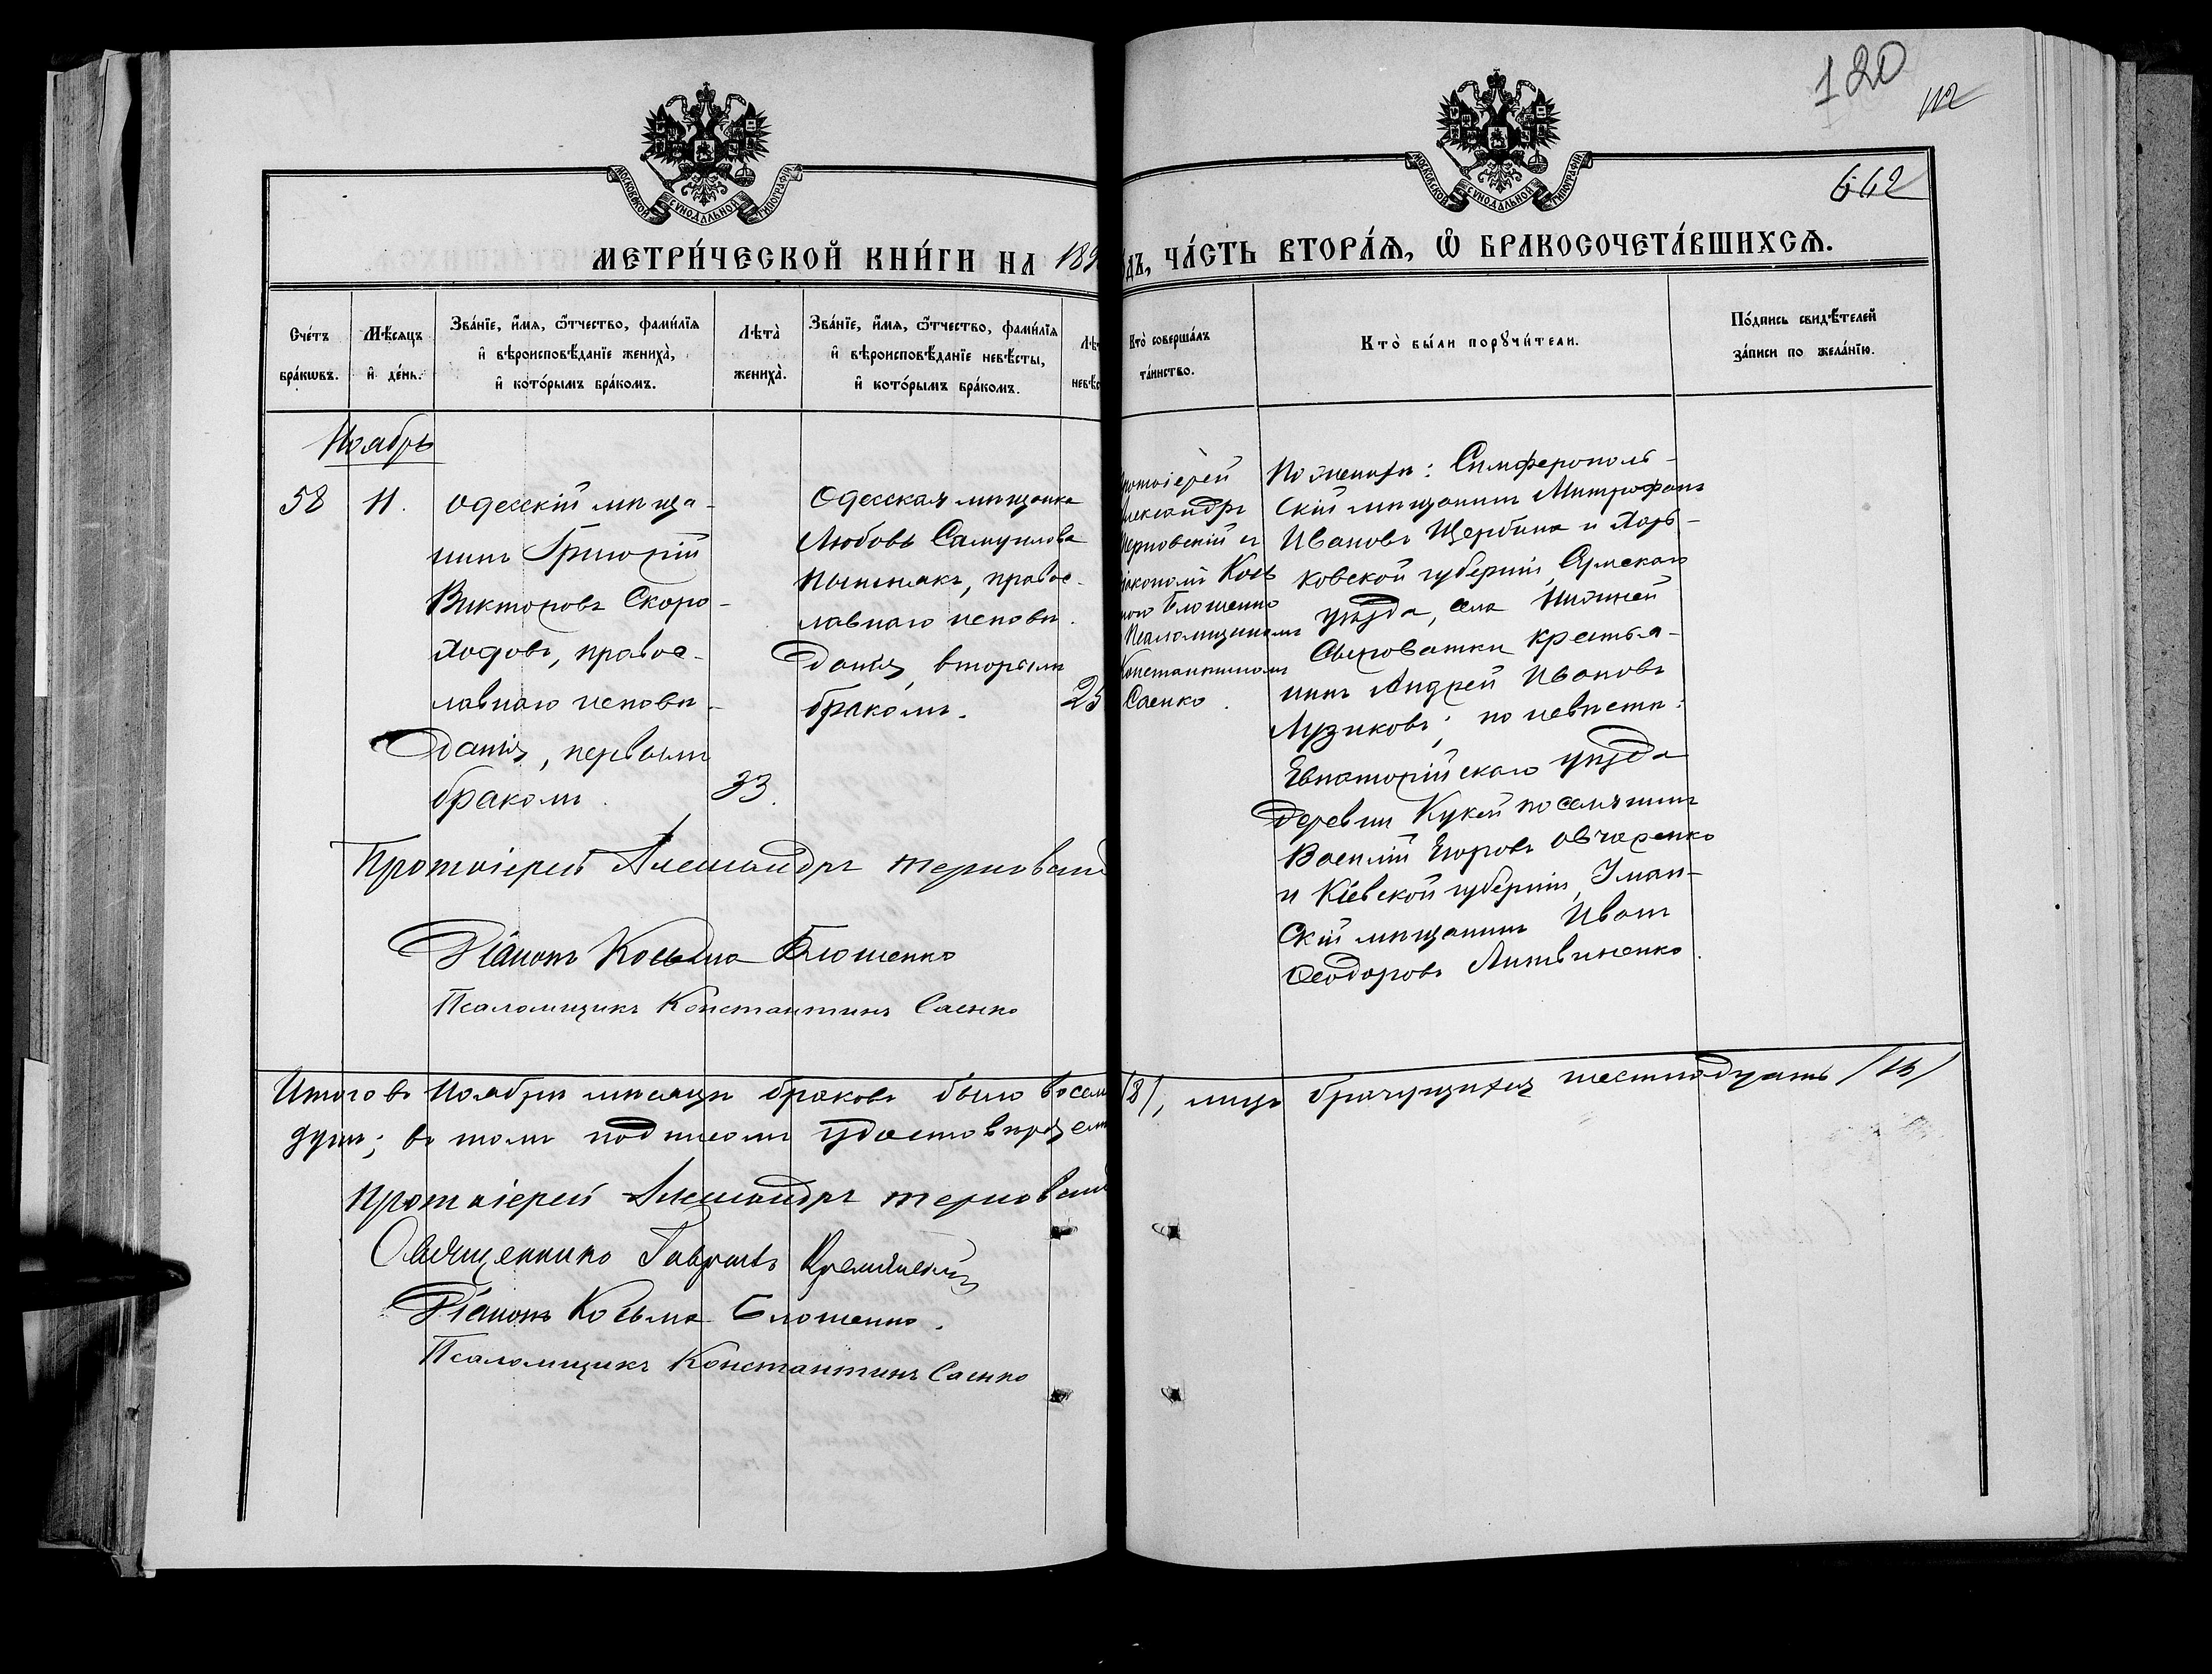 120
112
642
МОСКОВСКОЙ СѴНОДАЛЬНОЙ ТИПОГРАФІИ
МОСКОВСКОЙ СѴНОДАЛЬНОЙ ТИПОГРАФІИ
МЕТРИ́ЧЕСКОЙ КНИ́ГИ НА 189
ДЪ, ЧА́СТЬ ВТОРА́Ѧ, Ѽ БРАКОСОЧЕТА́ВШИХСѦ.
Сче́тъ бра́кѡвъ.
Мѣ́сяцъ и҆ де́нь.
Зва́нїе, и҆́мѧ, ѻ҆́тчество, фами́лїѧ и҆ вѣроисповѣ́данїе жениха̀, и҆ кото́рымъ бра́комъ.
Лѣта̀ жениха̀.
Зва́нїе, и҆́мѧ, ѻ҆́тчество, фами́лїѧ и҆ вѣроисповѣ́данїе невѣ́сты, и҆ кото́рымъ бра́комъ.
Кто̀ соверша́лъ та́инство.
Кто̀ бы́ли порꙋчи́тели.
По́дпись свидѣ́телей за́писи по жела́нїю.
Ноябрь
58
11.
Одесскій мѣща-
нинъ Григорій
Викторовъ Скоро-
ходовъ, правос-
лавнаго исповѣ-
данія, первымъ
бракомъ.
33.
Одесская мѣщанка
Любовь Самуилова
правос-
лавнаго исповѣ-
данія, вторымъ
бракомъ.
25
ротоіерей
лександръ
ерновскій съ
іакономъ Кось
мою Блошенко
Псаломщикомъ
Константиномъ
Саенко.
По женихѣ: Симферополь-
скій мѣщанинъ Митрофанъ
Ивановъ Щербина и Харь-
ковской губерніи, Сумскаго
уѣзда, села Нижней
Сыроватки крестья-
нинъ Андрей Ивановъ
Лузиковъ; по невѣстѣ:
Евпаторійскаго уѣзда
деревни Кукей поселянинъ
Василій Егоровъ Овчаренко
и Кіевской губерніи, Уман-
скій мѣщанинъ Иванъ
Ѳеодоровъ Литвиненко.
Протоіерей Александръ Терновскі
Діаконъ Косьма Блошенко
Псаломщикъ Константинъ Саенко
Итого въ Ноябрѣ мѣсяцѣ браковъ было восем (8), лицъ брачущихся шестнадцать (16)
душъ; въ томъ подписомъ удостовѣряем
Протоіерей Александръ Терновскі
Священникъ Гавріилъ
Діаконъ Косьма Блошенко.
Псаломщикъ Константинъ Саенко